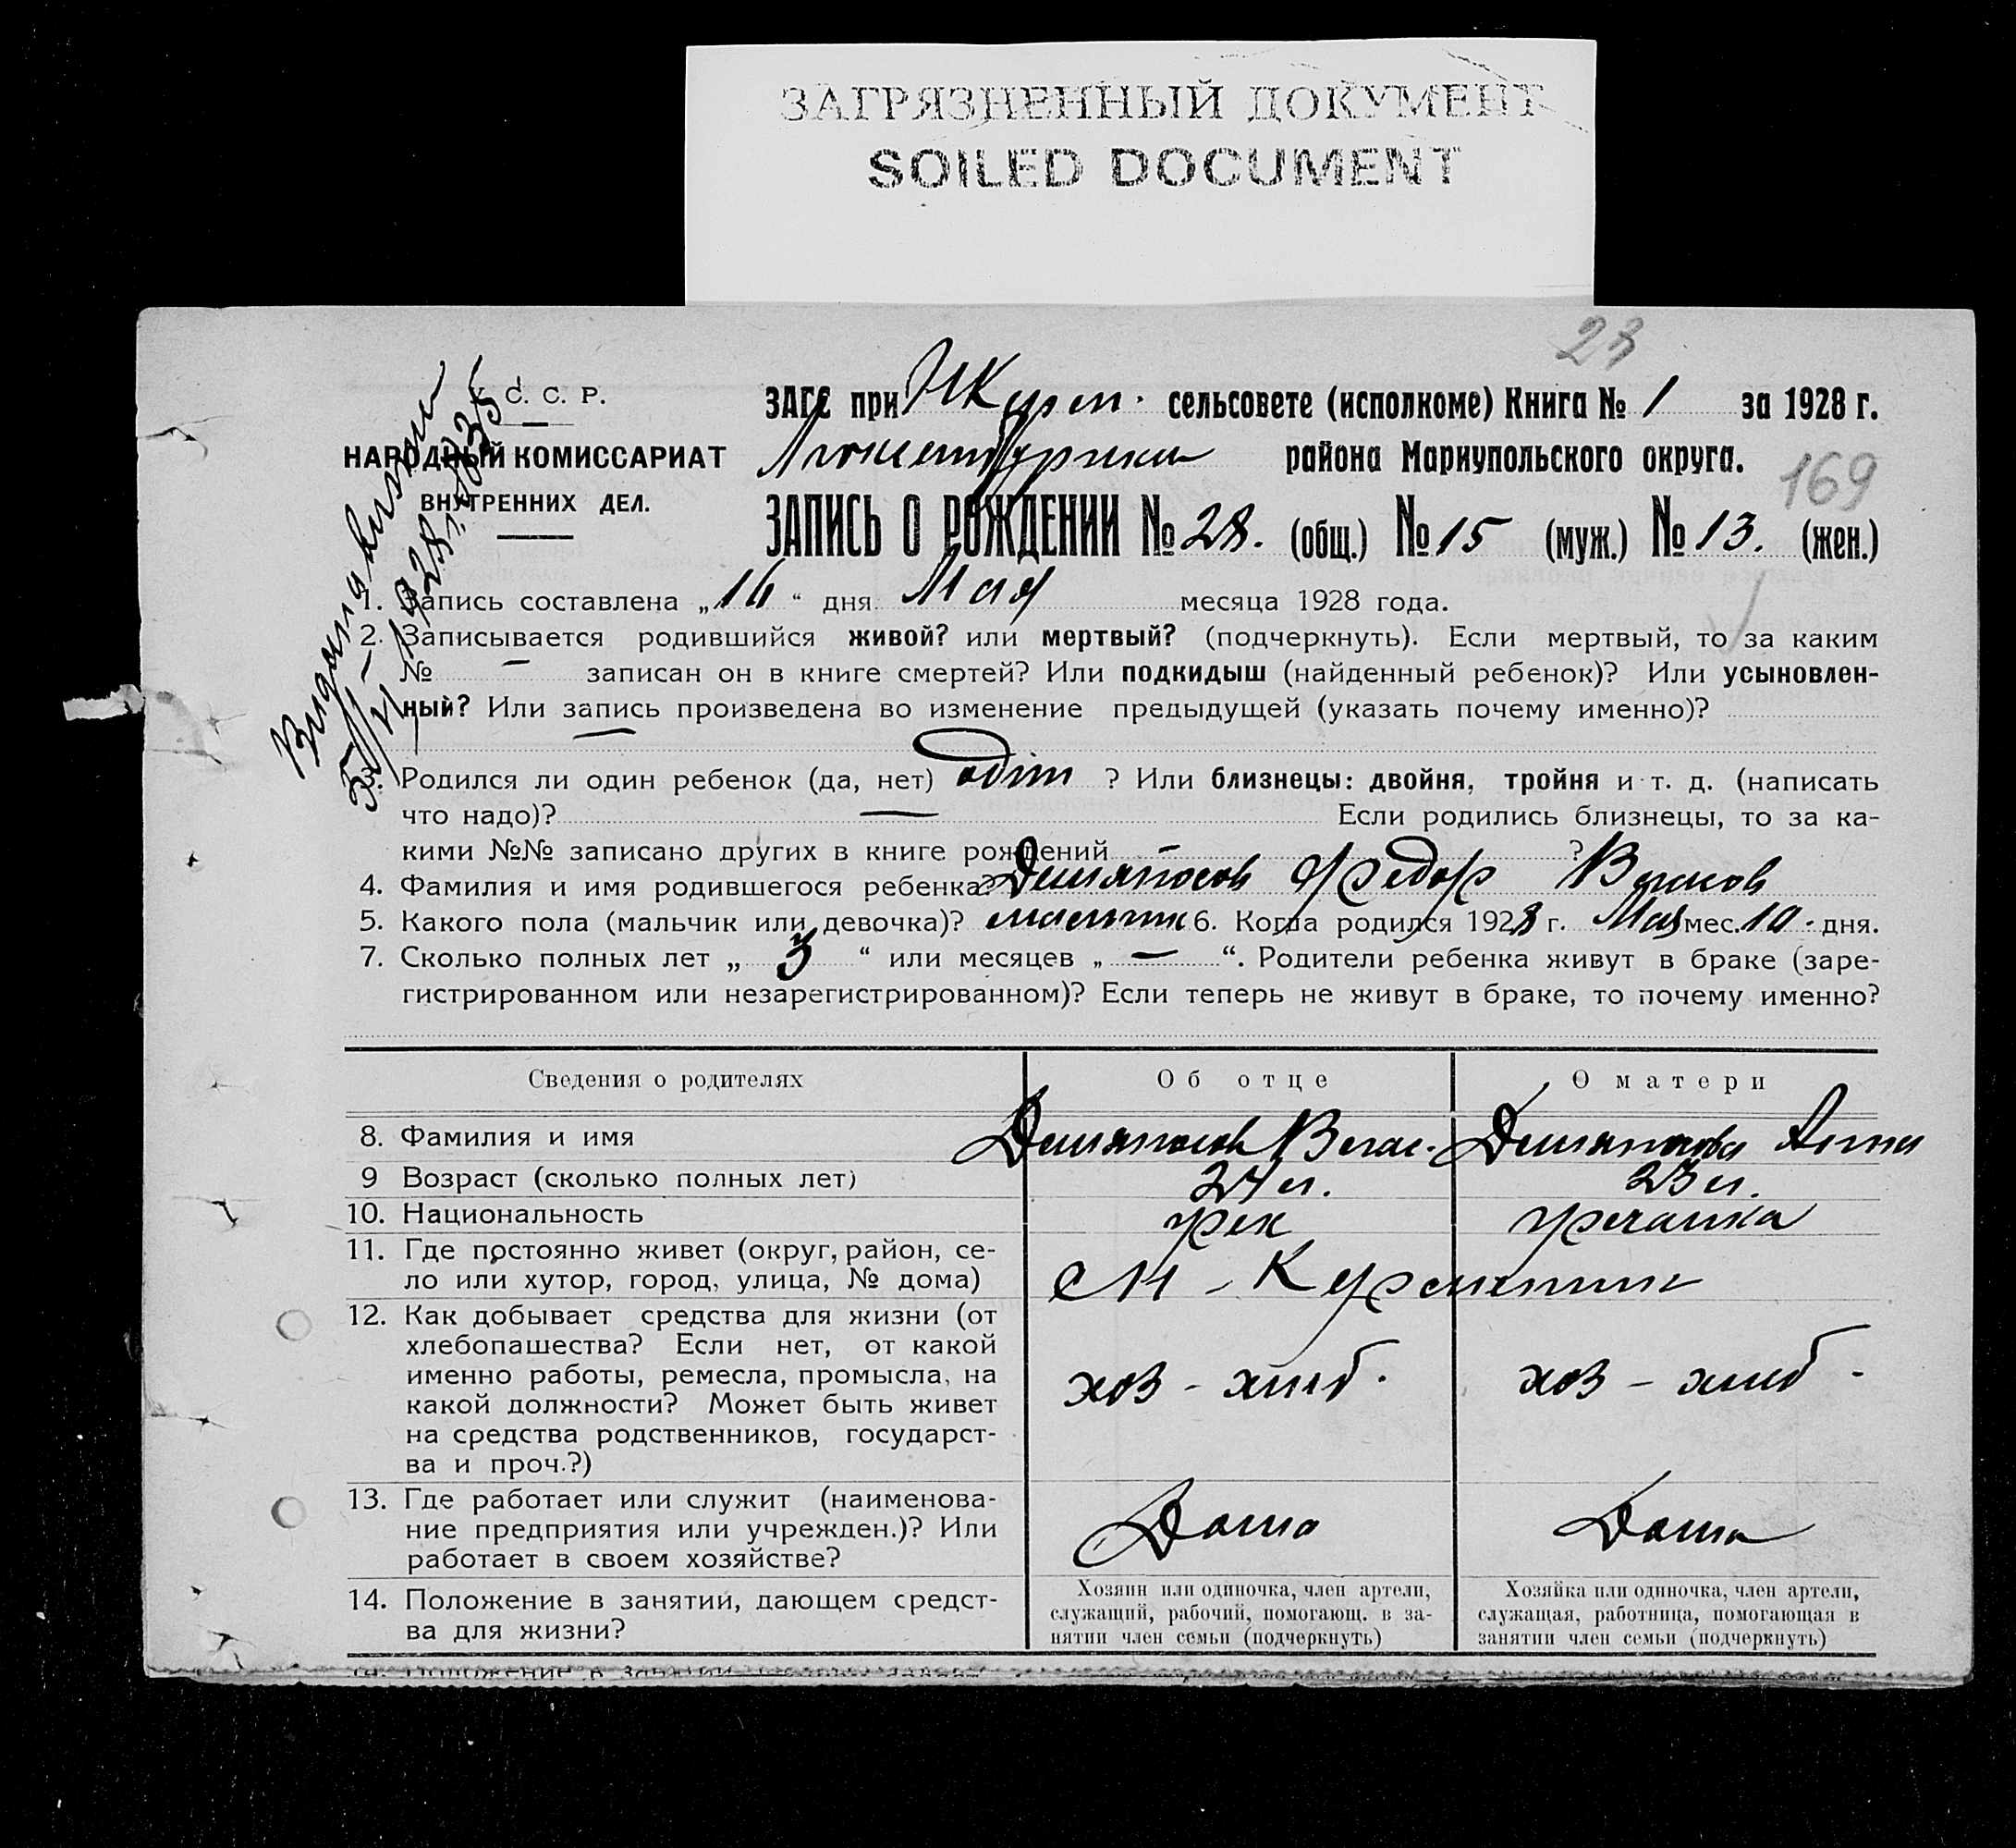 ЗАГРЯЗНЕННЫЙ ДОКУМЕНТ
SOILED DOCUMENT
23
С. С. Р.
НАРОДНЫЙ КОМИССАРИАТ
ВНУТРЕННИХ ДЕЛ.
ЗАГС при сельсовете (исполкоме) Книга № 1 за 1928 г.
района Мариупольского округа.
169
ЗАПИСЬ О РОЖДЕНИИ № 28. (общ.) № 15 (муж.) № 13. (жен.)
1. Запись составлена „16“ дня Мая месяца 1928 года.
2. Записывается родившийся живой? или мертвый? (подчеркнуть). Если мертвый, то за каким
№ — записан он в книге смертей? Или подкидыш (найденный ребенок)? Или усыновлен-
ный? Или запись произведена во изменение предыдущей (указать почему именно)?
—
3. Родился ли один ребенок (да, нет) один ? Или близнецы: двойня, тройня и т. д. (написать
что надо)? — Если родились близнецы, то за ка-
кими №№ записано других в книге рождений — ?
4. Фамилия и имя родившегося ребенка? Федор
5. Какого пола (мальчик или девочка)? мальчик 6. Когда родился 1928 г. Мая мес. 10 дня.
7. Сколько полных лет „ 3 “ или месяцев „ — “. Родители ребенка живут в браке (заре-
гистрированном или незарегистрированном)? Если теперь не живут в браке, то почему именно?
Сведения о родителях Об отце О матери
8. Фамилия и имя Анна
9 Возраст (сколько полных лет) 24 л. 23 л.
10. Национальность грек гречанка
11. Где постоянно живет (округ, район, се-
ло или хутор, город, улица, № дома)
12. Как добывает средства для жизни (от
хлебопашества? Если нет, от какой
именно работы, ремесла, промысла, на
какой должности? Может быть живет
на средства родственников, государст-
ва и проч.?)
хоз - хлеб. хоз - хлеб.
13. Где работает или служит (наименова-
ние предприятия или учрежден.)? Или
работает в своем хозяйстве?
Дома Дома
14. Положение в занятии, дающем средст-
ва для жизни?
Хозяин или одиночка, член артели,
служащий, рабочий, помогающ. в за-
нятии член семьи (подчеркнуть)
Хозяйка или одиночка, член артели,
служащая, работница, помогающая в
занятии член семьи (подчеркнуть)